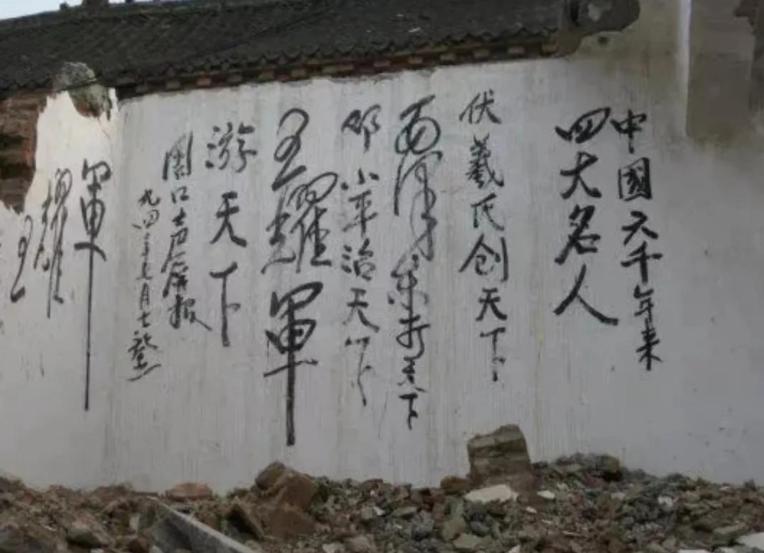 中國六千年来
四大名人
伏羲氏创天下
毛泽东打天下
邓小平治天下
王耀軍
游天下
周口
九四年七月七
王耀軍